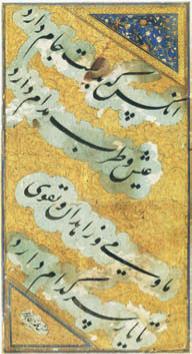 آنکس که بدست جام دارد
عیش و طرب مدام دارد
ما و می و زاهدان و تقوی
تا یار سر کدام دارد